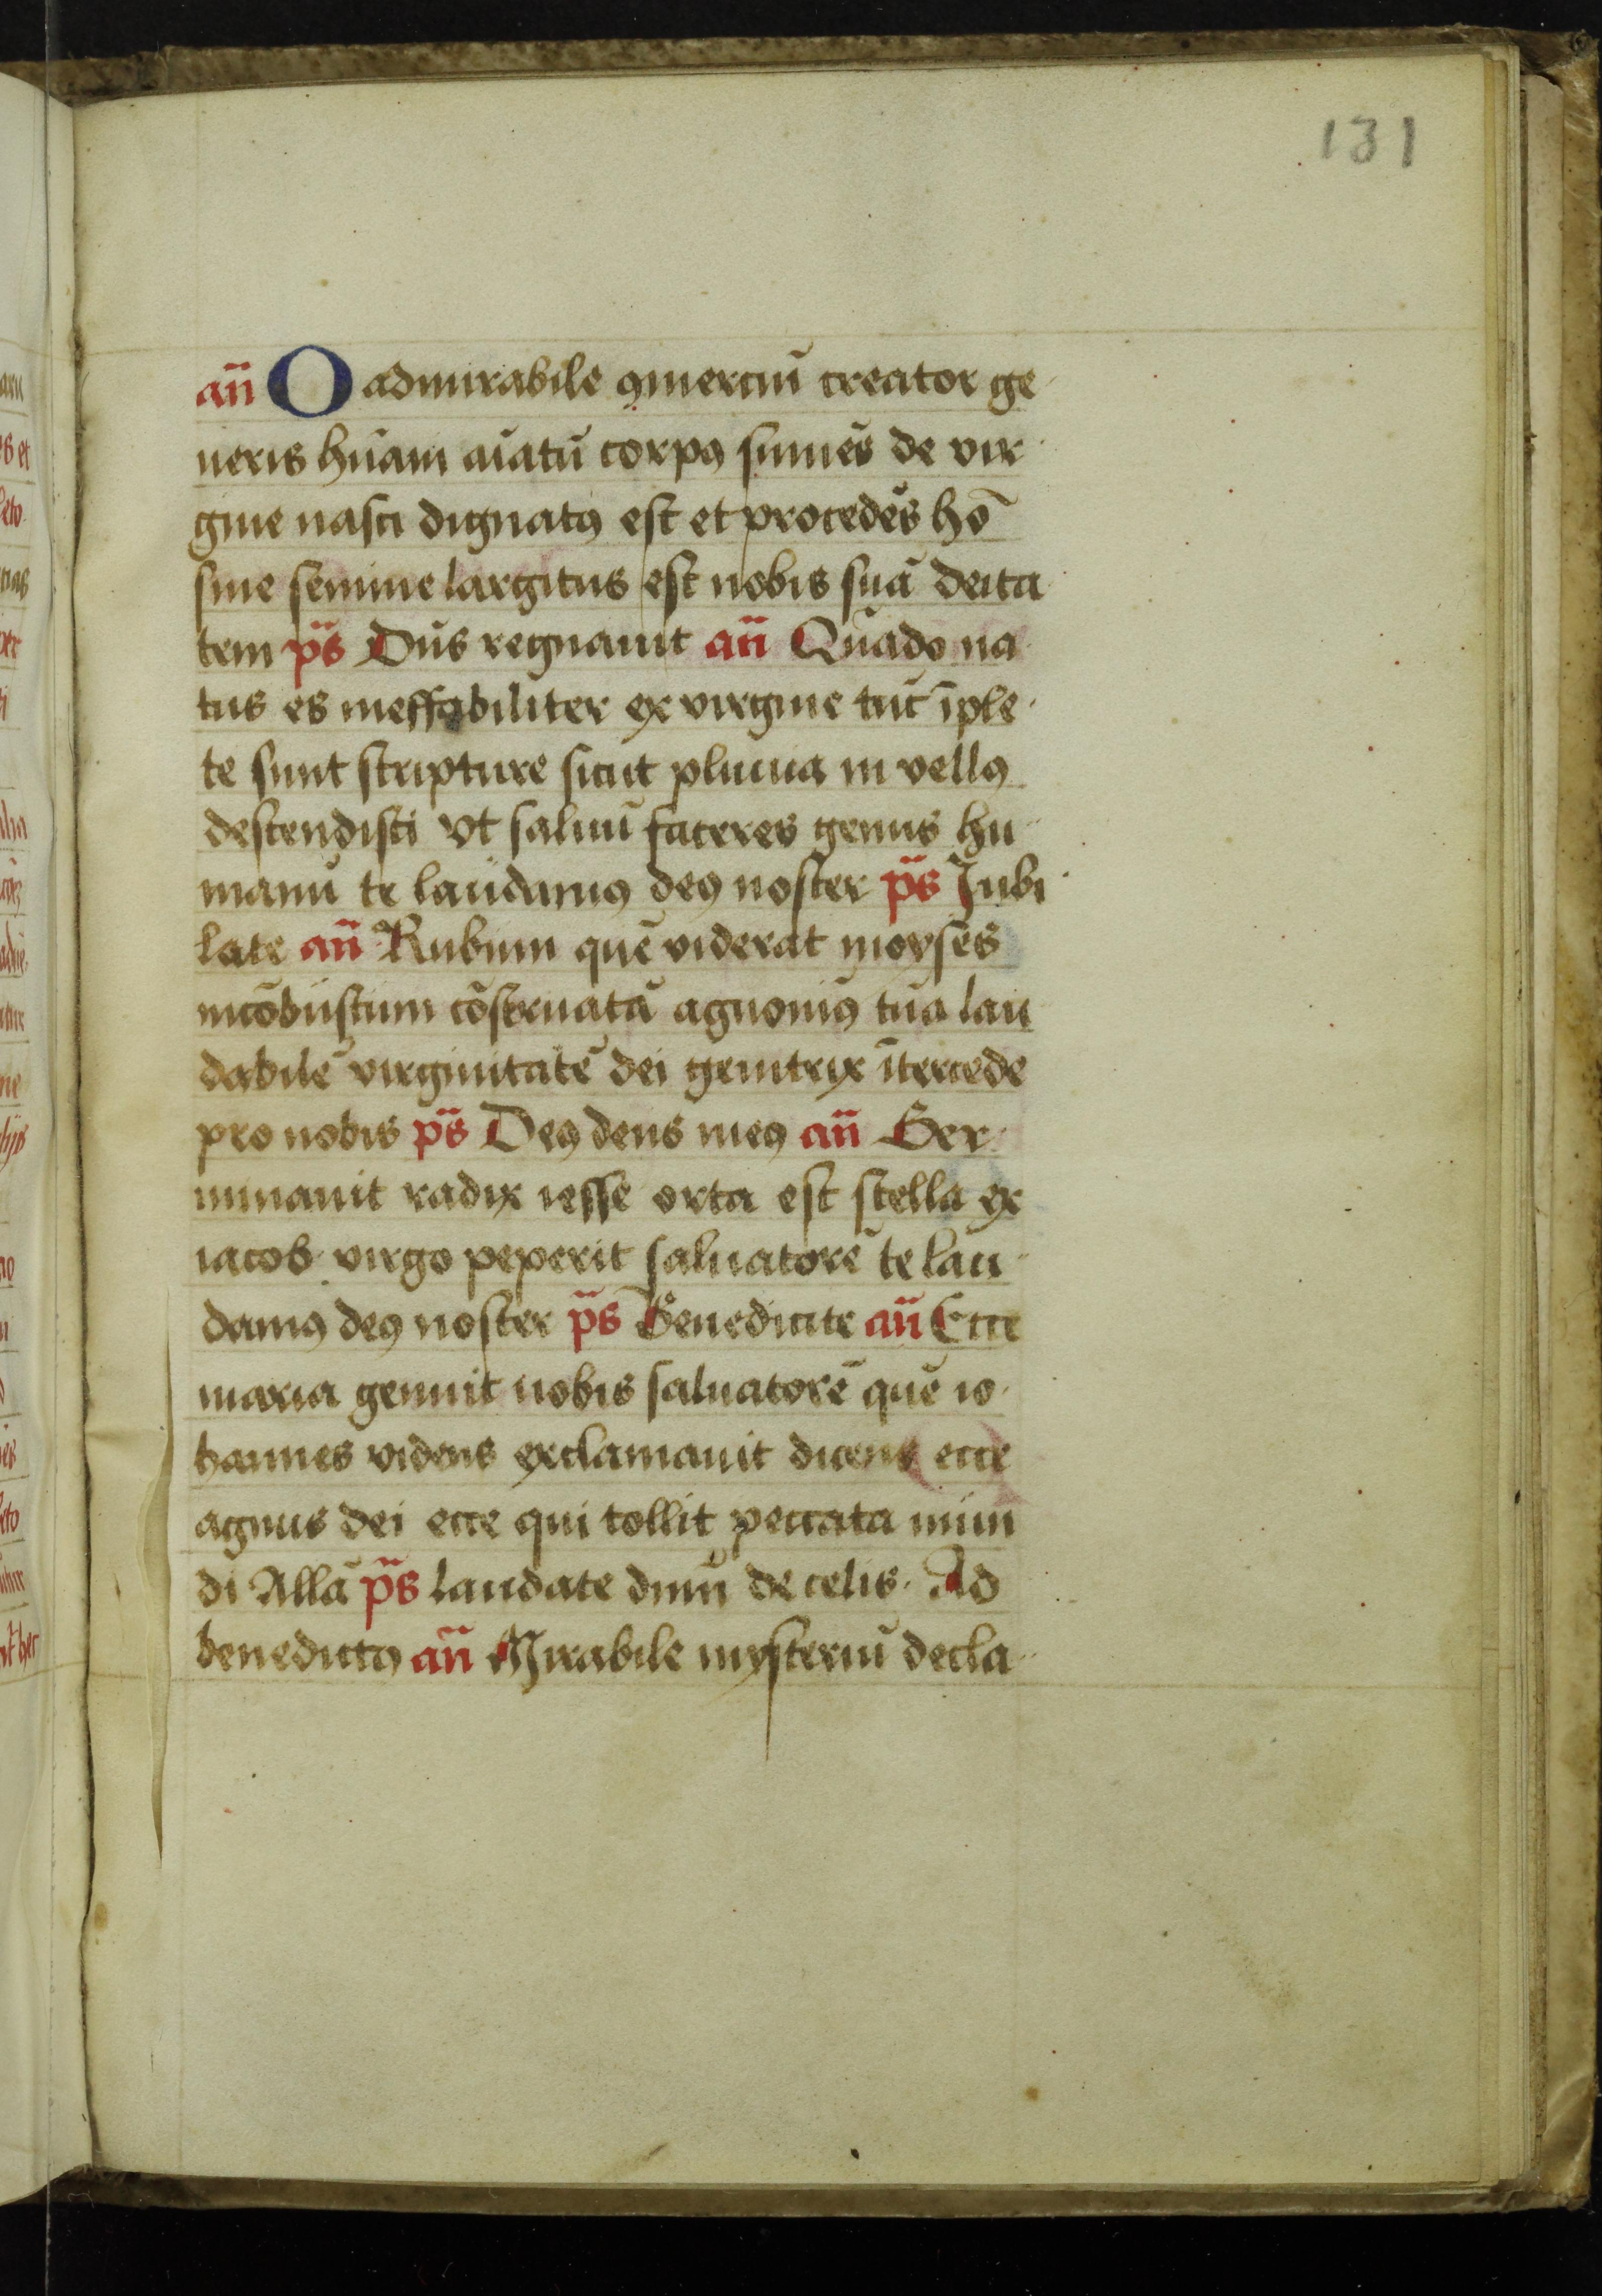 131
an̄ O admirabile ꝯmerciū creator ge
neris hūani aīatū corpꝰ sumēs de vir
gine nasci dignatꝰ est et procedēs hō
sine semine largitus est nobis suā deita
tem ps̄ Dn̄s regnauit an̄ Quādo na
tus es ineffabiliter ex virgine tūc īple
te sunt scripture sicut pluuia in vellꝰ
descendisti vt saluū faceres genus hu
manū te laudamꝰ deꝰ noster ps̄ Jubi
late an̄ Rubum quē viderat moyses
incōbustum cōseruatā agnouimꝰ tua lau
dabilē virginitatē dei genitrix ītercede
pro nobis ps̄ Deꝰ deus meꝰ an̄ Ger
minauit radix iesse orta est stella ex
iacob virgo peperit saluatorē te lau
damꝰ deꝰ noster ps̄ Benedicite an̄ Ecce
maria genuit nobis saluatorē quē io
hannes videns exclamauit dicens ecce
agnus dei ecce qui tollit peccata mun
di Allā ps̄ laudate dn̄m de celis. Ad
benedictꝰ an̄ Mirabile mysteriū decla